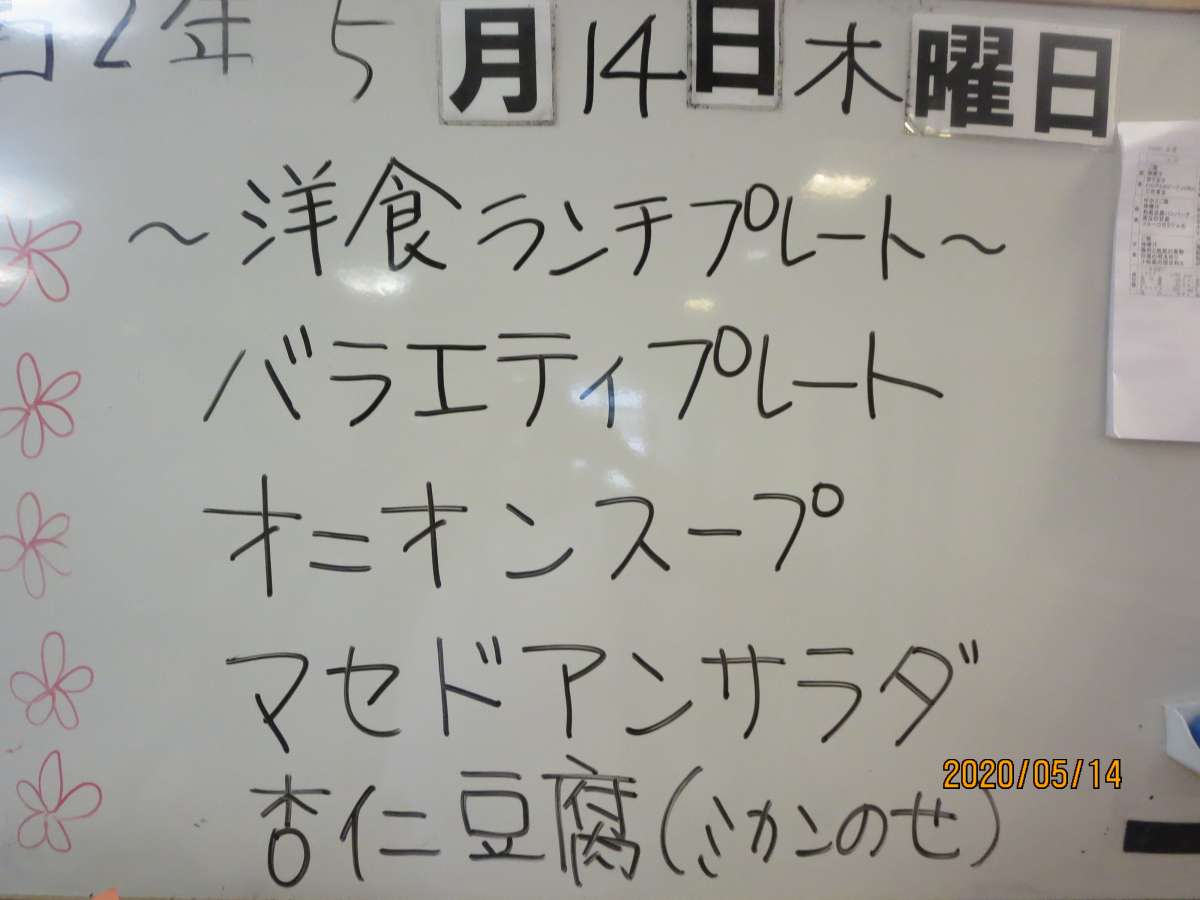 2年 5月14日木曜日
〜洋食ランチプレート〜
バラエティプレート
オニオンスープ
マセドアンサラダ
杏仁豆腐(ミカンのせ)
2020/05/14